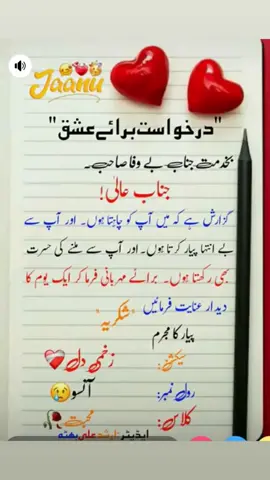 Jaanu
"درخواست برائے عشق"
بخدمت جناب بے وفا صاحب۔
جناب عالی!
گزارش ہے کہ میں آپ کو چاہتا ہوں۔ اور آپ سے
بے انتہا پیار کرتا ہوں۔ اور آپ سے ملنے کی حسرت
بھی رکھتا ہوں۔ برائے مہربانی فرما کر ایک یوم کا
دیدار عنایت فرمائیں
"شکریہ"
پیار کا مجرم
سیکشن: زخمی دل ❤️‍🩹
رول نمبر: آنسو 😢
کلاس: محبت 🥀
ایڈیٹر: ارشد علی بھٹہ